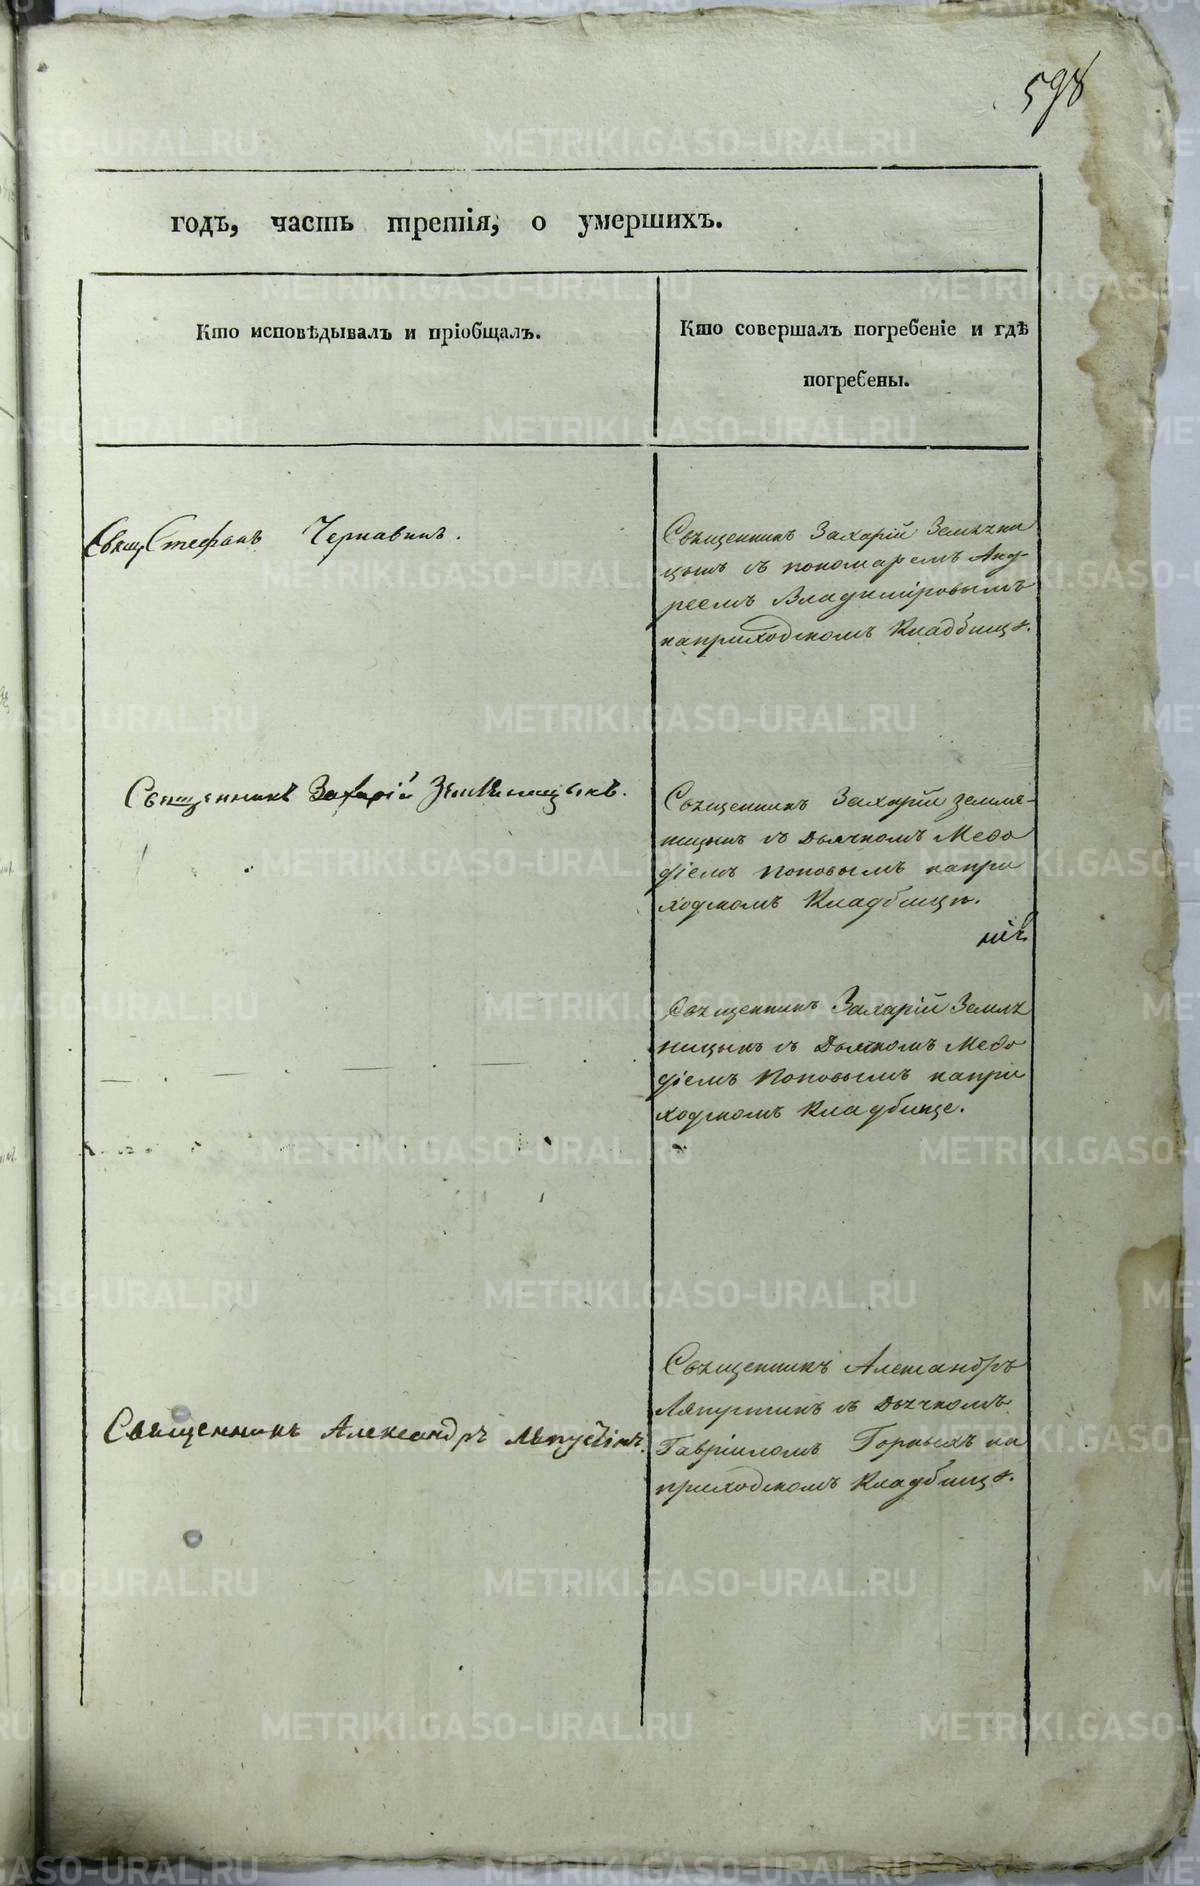 598
годъ, часть третія, о умершихъ.
Кто исповѣдывалъ и пріобщалъ.
Кто совершалъ погребеніе и гдѣ
погребены.
Свящ Стефанъ Чернавинъ.
Священникъ Захарій Земляни
цынъ съ пономаремъ Анд-
реемъ Владиміровымъ
на приходскомъ Кладбищѣ.
Священникъ Захарій Земляницынъ.
Священникъ Захарій Земля-
ницынъ съ Дьячкомъ Меѳо
діемъ Поповымъ на при
ходскомъ Кладбищѣ.
Священникъ Захарій Земля
ницынъ съ Дьячкомъ Меѳо
діемъ Поповымъ на при
ходскомъ Кладбище.
Священникъ Александръ Ляпустинъ.
Священникъ Александръ
Ляпустинъ съ Дьячкомъ
Гавріиломъ Горныхъ на
приходскомъ Кладбищѣ.
METRIKI.GASO-URAL.RU